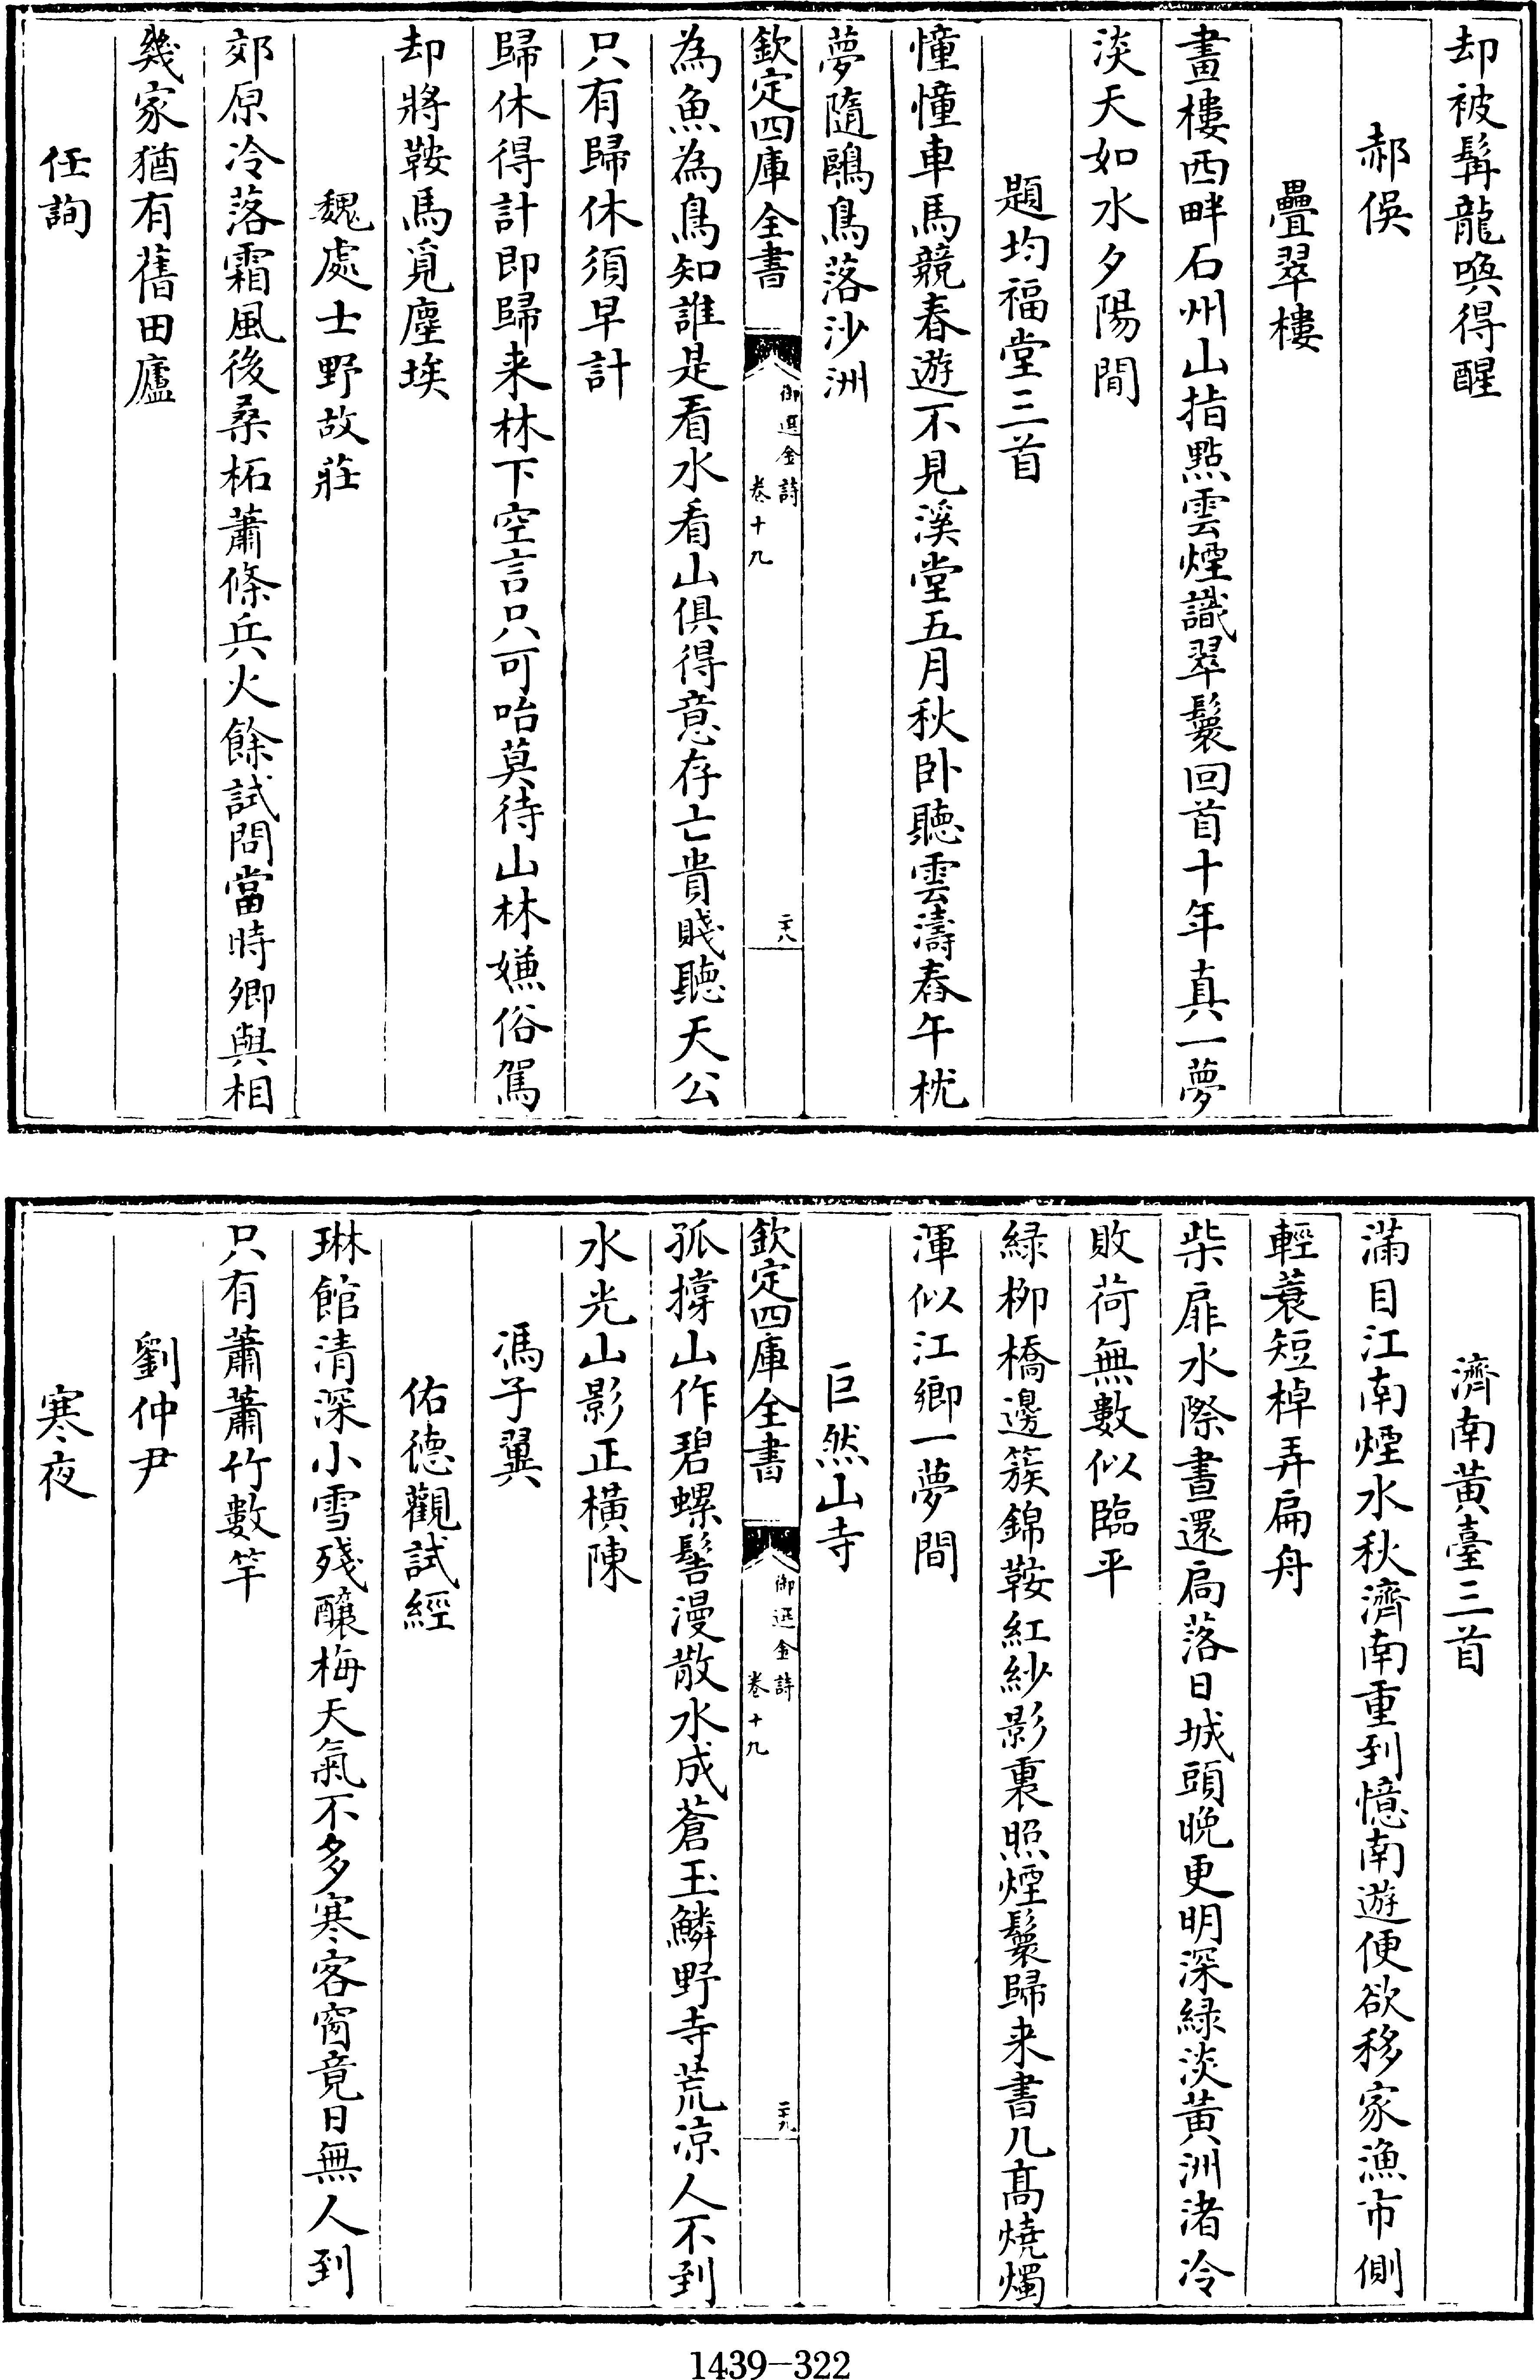 却被髯龍喚得醒
郝俣
疊翠樓
畫樓西畔石州山指點雲煙識翠鬟回首十年真一夢
淡天如水夕陽間
題均福堂三首
憧憧車馬競春遊不見溪堂五月秋卧聽雲濤舂午枕
夢隨鷗鳥落沙洲
欽定四庫全書
御選金詩
卷十九
二十八
為魚為鳥知誰是看水看山俱得意存亡貴賤聽天公
只有歸休須早計
歸休得計即歸来林下空言只可咍莫待山林嫌俗駕
却將鞍馬覓塵埃
魏處士野故莊
郊原冷落霜風後桑柘蕭條兵火餘試問當時卿與相
幾家猶有舊田廬
任詢
濟南黃臺三首
滿目江南煙水秋濟南重到憶南遊便欲移家漁市側
輕蓑短棹弄扁舟
柴扉水際晝還扃落日城頭晚更明深綠淡黃洲渚冷
敗荷無數似臨平
綠柳橋邊簇錦鞍紅紗影裏照煙鬟歸来書几髙燒燭
渾似江鄉一夢間
巨然山寺
欽定四庫全書
御選金詩
卷十九
二十九
孤撐山作碧螺髻漫散水成蒼玉鱗野寺荒凉人不到
水光山影正橫陳
馮子翼
佑德觀試經
琳館清深小雪殘釀梅天氣不多寒客窗竟日無人到
只有蕭蕭竹數竿
劉仲尹
寒夜
1439-322